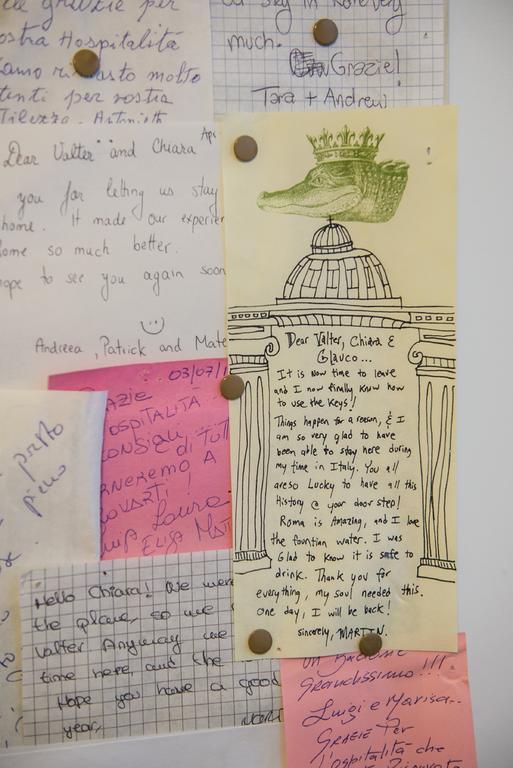 grazie per
ostra Hospitalità
molto
per vostra
much.
Grazie!
Tara + Andreui
Dear Valter and Chiara
you for letting us stay
home. It made our experien
ome so much better.
ope to see you again soon
Andreea, Patrick and Mate
03/07/1
OSPITALITÀ
CONSIGLI E DI TUTT
RNEREMO A
ROVARVI!
Laura
ELISA
Dear Valter, Chiara &
Glauco...
It is now time to leave
and I now finally know how
to use the keys!
Things happen for a reason, & I
am so very glad to have
been able to stay here during
my time in Italy. You all
areso Lucky to have all this
History @ your door step!
Roma is Amazing, and I love
the fountian water. I was
Glad to know it is safe to
drink. Thank you for
everything, my soul needed this.
One day, I will be back!
sincerely, MARTIN.
Hello Chiara! We were
the plane, so we
Valter Anyway we
time here, and the
Hope you have a good
year,
GRANDISSIMO!!!
Luigi e Marisa...
GRAZIE Per
l'ospitalità che